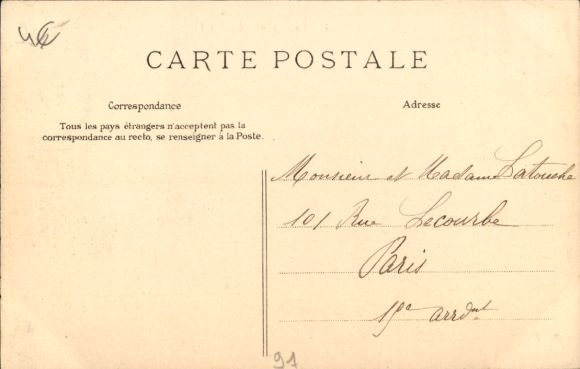 CARTE POSTALE
Correspondance
Tous les pays étrangers n'acceptent pas la
correspondance au recto, se renseigner à la Poste.
Adresse
Monsieur et Madame Latouche
101 Rue Lecourbe
Paris
15e arrdnt
91